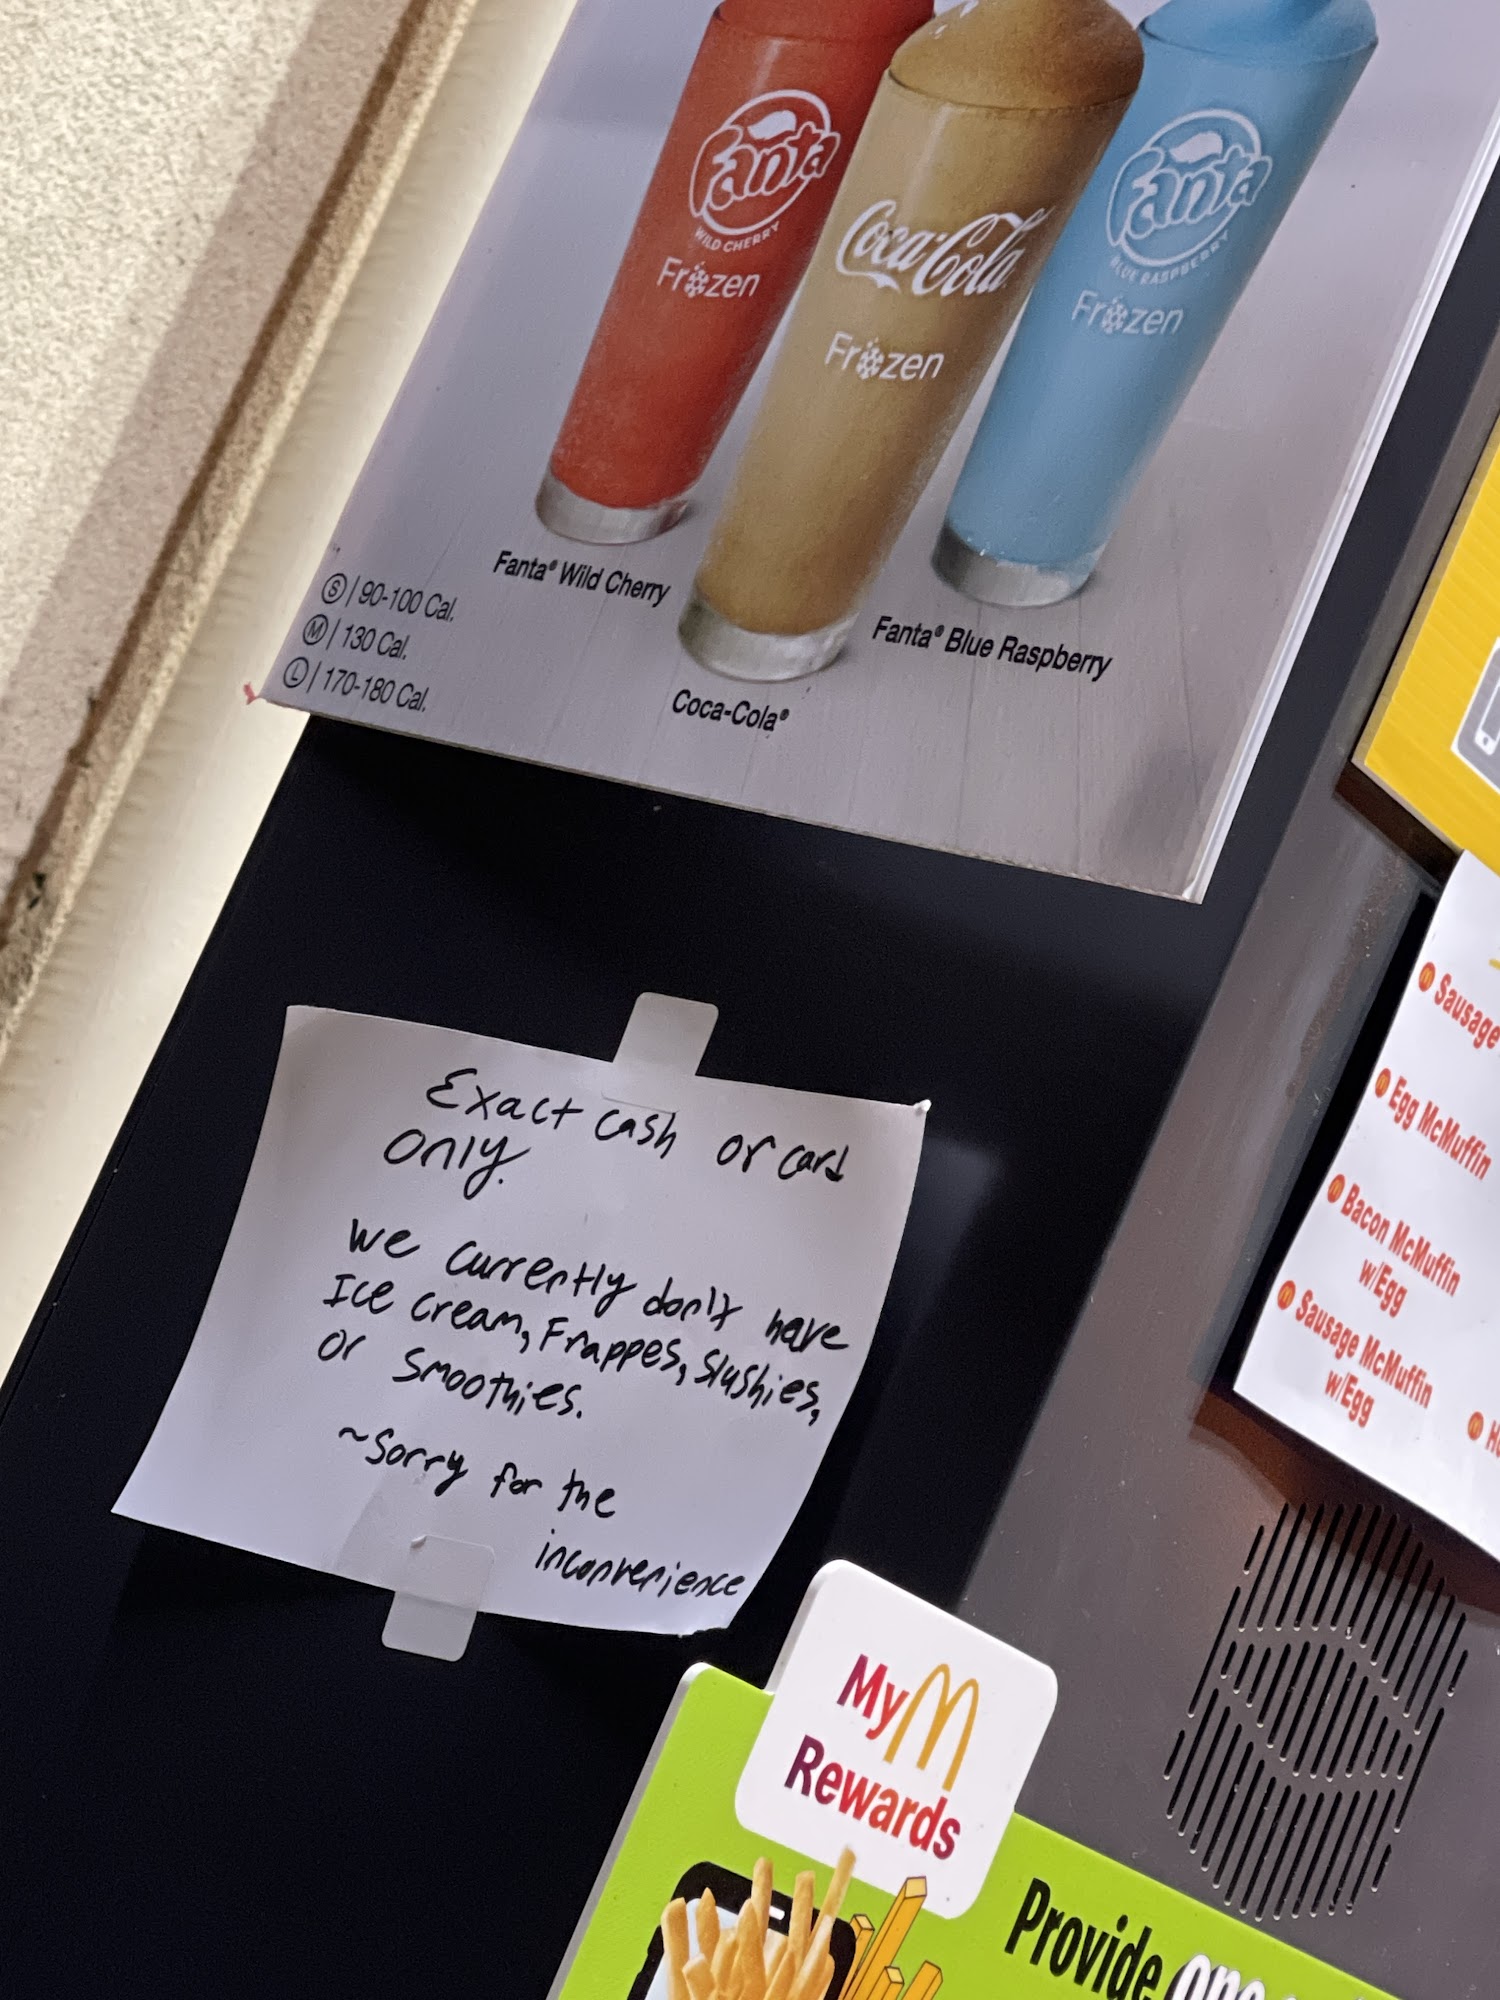 Fanta
WILD CHERRY
Frozen
Coca-Cola
Frozen
Fanta
BLUE RASPBERRY
Frozen
Fanta® Wild Cherry
Coca-Cola®
Fanta® Blue Raspberry
S | 90-100 Cal.
M | 130 Cal.
L | 170-180 Cal.
Exact cash or card
only.
We currently don't have
Ice cream, Frappes, slushies,
or smoothies.
~Sorry for the
inconvenience
Sausage
Egg McMuffin
Bacon McMuffin
w/Egg
Sausage McMuffin
w/Egg
My
Rewards
Provide one